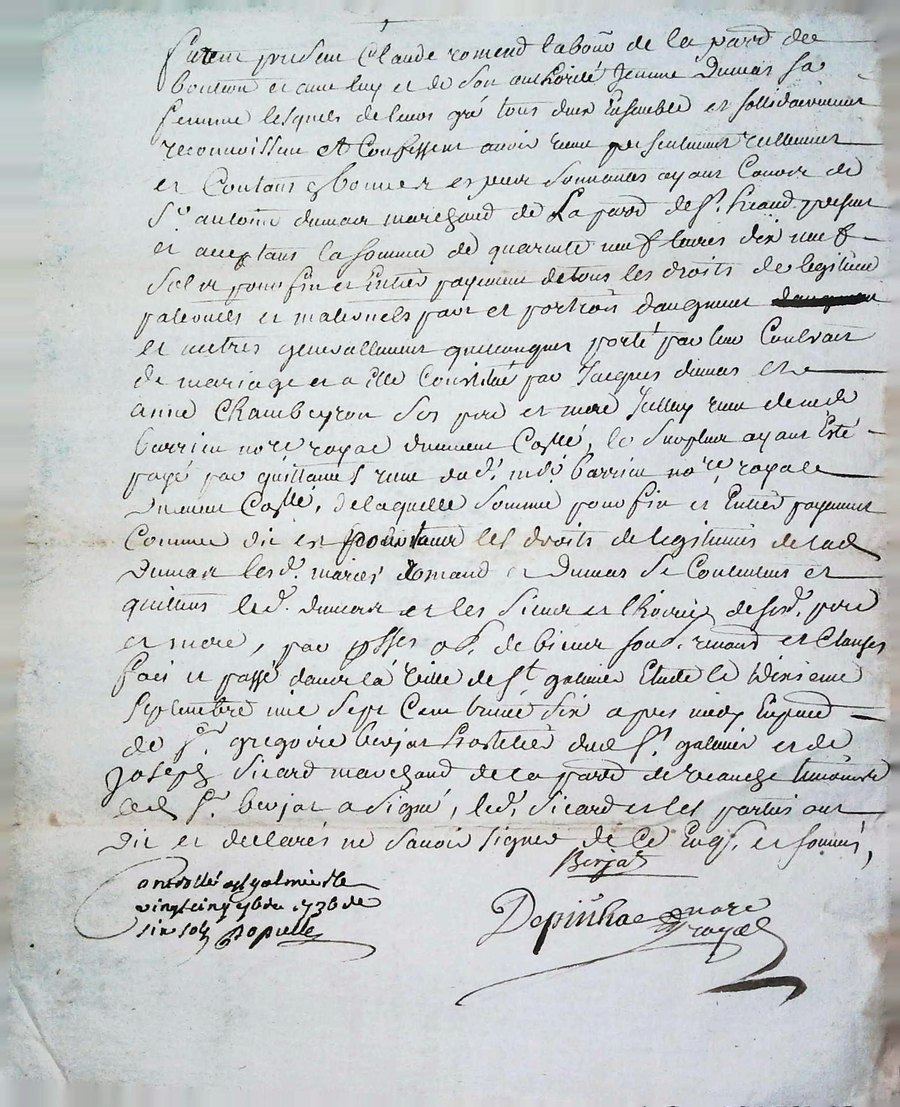 furent presens Claude romend laboŭr de la parr de
bouteon et avec luy et de son authorité Jeanne Dumas sa
femme lesquels de leurs gré tous deux Ensemble et sollidairement
reconnoissent et Confessent avoir reçeu presentement reellement
et Contans bonnes especes sonnantes ayant Cours de
Sr. antoine dumas marchand de La parr de St. heand present
et aceptant la somme de quarente neuf livres dix neuf
Sols pour fin et Entier payement de tous les droits de legitime
paternels et maternels part et portions daugment
et autres generallement quelconques porté par leur Contrat
de mariage et a elle Constitué par Jacques dumas et
anne Chambeyron ses pere et mere Jcelluy receu de
barrieu nore royal duement Collé, le Surplus ayant Esté
payé par quittance receue dud. barrieu nore royal
Duement Collé, de laquelle Somme pour fin et Entier payement
Comme dit est pour tous les droits de legitimes de lad
Dumas lesd. mariés Romand et Dumas se Contentent et
quittent led. dumas et les sieurs et hoirs de sesd. pere
et mere, par de biens renond et Clauses
fait et passé dans la Ville de St galmier Etude le
Septembre mil Sept Cent trente Six apres midy En presence
de Sr. gregoire berjat hostelier dud St. galmier et de
Joseph Sicard marchand de la parr de
led Sr. berjat a signé, led. Sicard et les parties ont
Dit et declarés ne Savoir signer de Ce Enqs. et sommés,
Berjat
controllé a st galmier le
vingt cinq 7bre 1736 de
six sols Populle
nore
royal